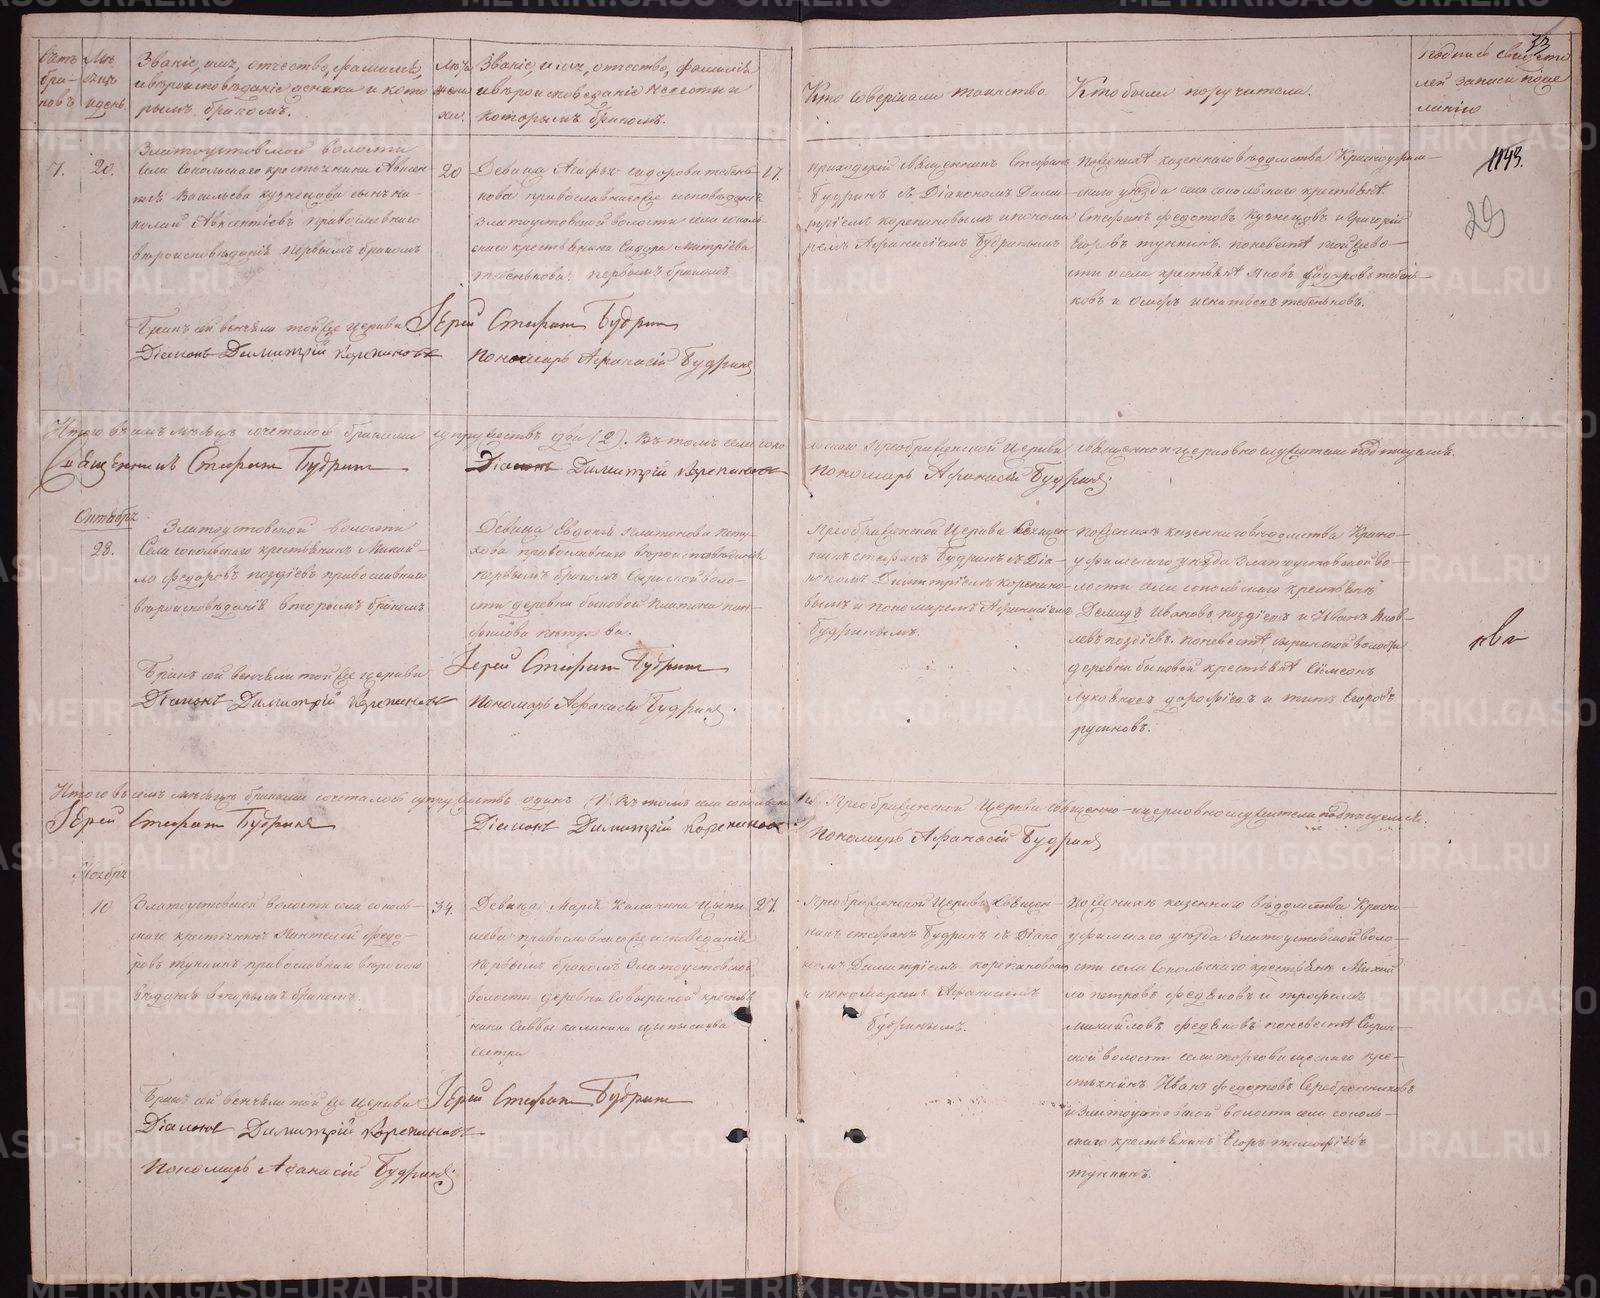 Счетъ бра-ковъ
Мѣсяцъ и день
Званіе, имя, отчество, фамилія,
и вѣроисповѣданіе жениха и кото
рымъ бракомъ.
Лѣта жениха.
Званіе, имя, отчество, фамилія
и вѣроисповѣданіе невѣсты и
которымъ бракомъ.
Кто совершалъ таинство.
Кто были поручители.
Подпись свидѣте
лей записи
33
7.
20.
Златоустовской волости
Села Сокольскаго крестьянина
Васильева Кузнецова сынъ Ни-
колай Авксентіевъ православнаго
вѣроисповѣданія первымъ бракомъ
20
Девица Сидорова Тебень-
кова православнаго исповѣданія
Златоустовской волости села Соколь-
скаго крестьянина Сидора Митріева
Тебенькова. первымъ бракомъ
17.
Приходской Священникъ Стефанъ
Будринъ съ Діакономъ Дими
тріемъ Корепановымъ и понома
ремъ Афанасіемъ Будринымъ
По женихѣ казеннаго вѣдомства Красноуфим-
скаго уѣзда села Сокольскаго крестьяне
Стефанъ Федотовъ Кузнецовъ и Григорій
Егоровъ Тункинъ. по невестѣ той же во-
сти и села крестьяне Яковъ Сидоровъ Тебень-
ковъ и Осипъ Игнатьевъ Тебеньковъ.
1143.
29
Бракъ сей венчали той же церкви
Іерей Стефанъ Будринъ
Діаконъ Димитрій Корепановъ
Пономарь Афанасій Будринъ
Итого въ семъ мѣсяцѣ сочеталось браками супружествъ два (2). Въ томъ села Соко
льскаго Преображенской Церкви священно и церковно служители подписуемся.
Священникъ Стефанъ Будринъ
Діаконъ Димитрій Корепановъ
Пономарь Афанасій Будринъ
Октябрь
28.
Златоустовской волости
Села Сокольскаго крестьянинъ Михай-
ло Федоровъ Поздѣевъ православнаго
вѣроисповѣданія вторымъ бракомъ
Девица Евдокія Платонова Пету-
хова православнаго вѣроисповѣданія
первымъ бракомъ Сыринской воло-
сти деревни Быковой Платона Пан-
филова Петухова.
Преображенской Церкви Священ-
никъ Стефанъ Будринъ съ Діа-
кономъ Димитріемъ Корепано-
вымъ и пономаремъ Афанасіемъ
Будринымъ.
По женихѣ казеннаго вѣдомства Красно-
уфимскаго уѣзда Златоустовской во-
лости села Сокольскаго крестьяне
Демидъ Ивановъ Поздѣевъ и Иванъ Яков-
левъ Поздѣевъ. по невестѣ Сыринской волости
деревни Быковой крестьяне Симеонъ
Дорофѣевъ и Титъ Егоровъ
Русиновъ.
Бракъ сей венчали той же церкви
Іерей Стефанъ Будринъ
Діаконъ Димитрій Корепановъ
Пономарь Афанасій Будринъ.
Итого въ семъ мѣсяцѣ браками сочеталось супружествъ одинъ (1). Въ томъ села Сокольска
го Преображенской Церкви священно-и церковнослужители подписуемся.
Іерей Стефанъ Будринъ
Діаконъ Димитрій Корепановъ
Пономарь Афанасій Будринъ
Ноябрь
10
Златоустовской волости села Соколь-
скаго крестьянинъ Пантелей Федо-
ровъ Тункинъ православнаго вѣроиспо
вѣданія вторымъ бракомъ.
34.
Девица Марѳа Калинина Цыпы
шева православнаго исповеданія
первымъ бракомъ Златоустовской
волости деревни крестья
нина Саввы Калинина
сестра
27.
Преображенской Церкви Священ-
никъ Стефанъ Будринъ съ Діако
номъ Димитріемъ Корепановымъ
и пономаремъ Афанасіемъ
Будринымъ.
По женихѣ казеннаго вѣдомства Красно-
уфимскаго уѣзда Златоустовской воло-
сти села Сокольскаго крестьяне Михай
ло Петровъ Федяковъ и Трофимъ
Михайловъ Федяковъ по невестѣ Сырин-
ской волости села Торговищескаго кре-
стьянинъ Иванъ Федотовъ Серебренниковъ
и Златоустовской волости села Соколь-
скаго крестьянинъ Егоръ Тимофѣевъ
Тункинъ.
Бракъ сей венчали той же церкви
Іерей Стефанъ Будринъ
Діаконъ Димитрій Корепановъ
Пономарь Афанасій Будринъ
METRIKI.GASO-URAL.RU